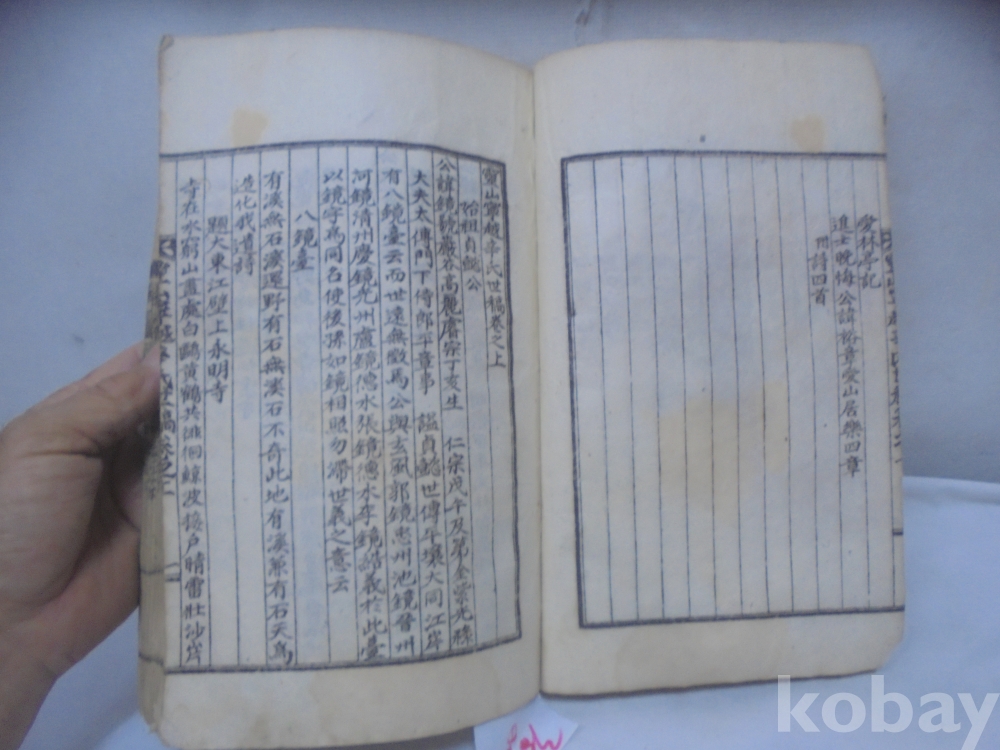 愛林亭記
進士晚悔公諱裕章愛山居樂四章
附詩四首
靈山寧越辛氏世稿卷之上
始祖貞懿公
公諱鏡號巖谷高麗睿宗丁亥生 仁宗戊午及第金紫光祿
大夫太傅門下侍郎平章事 謚貞懿世傳平壤大同江岸
有八鏡臺云而世遠無徵焉公與玄風郭鏡忠州池鏡晉州
河鏡清州慶鏡光州盧鏡德水張鏡德水李鏡誥義於此臺
以鏡字爲同名使後孫如鏡相照勿滯世義之意云
八鏡臺
有溪無石溪還野有石無溪石不奇此地有溪兼有石天爲
造化我遺詩
題大東江壁上永明寺
寺在水窮山盡處白鷗黃鶴共徘徊鯨波接戶晴雷壯沙岸
kobay